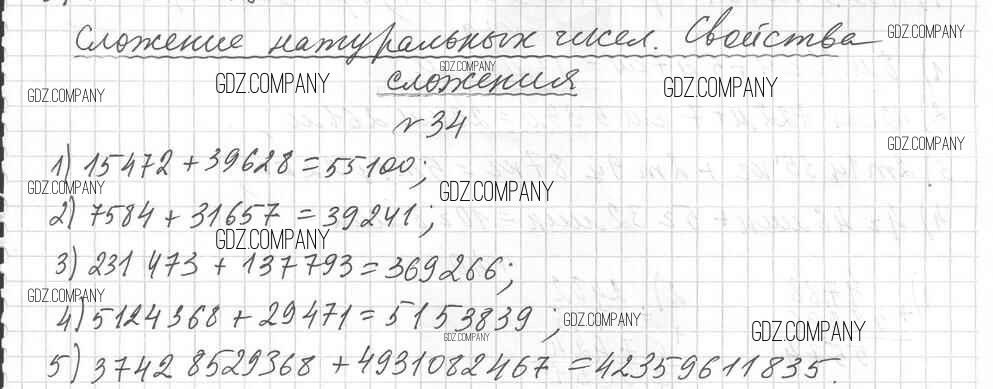 Сложение натуральных чисел. Свойства
сложения
№34
1) 15472 + 39628 = 55100;
2) 7584 + 31657 = 39241;
3) 231 473 + 137793 = 369266;
4) 5124368 + 29471 = 5153839;
5) 3742 8529368 + 4931082467 = 42359611835.
GDZ.COMPANY
GDZ.COMPANY
GDZ.COMPANY
GDZ.COMPANY
GDZ.COMPANY
GDZ.COMPANY
GDZ.COMPANY
GDZ.COMPANY
GDZ.COMPANY
GDZ.COMPANY
GDZ.COMPANY
GDZ.COMPANY
GDZ.COMPANY